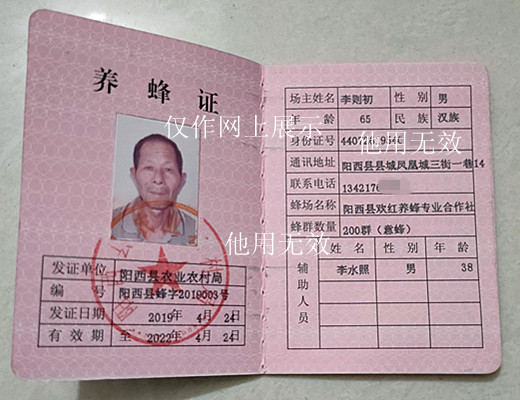 养蜂证
发证单位 阳西县农业农村局
编号 阳西县蜂字2019003号
发证日期 2019年 4月 24日
有效期 至 2022年 4月 24日
场主姓名 李则初 性别 男
年龄 65 民族 汉族
身份证号
通讯地址 阳西县县城凤凰城三街一巷14
联系电话 1342176
蜂场名称 阳西县欢红养蜂专业合作社
蜂群数量 200群（意蜂）
辅助人员 姓名 性别 年龄
李水照 男 38
仅作网上展示
他用无效
他用无效